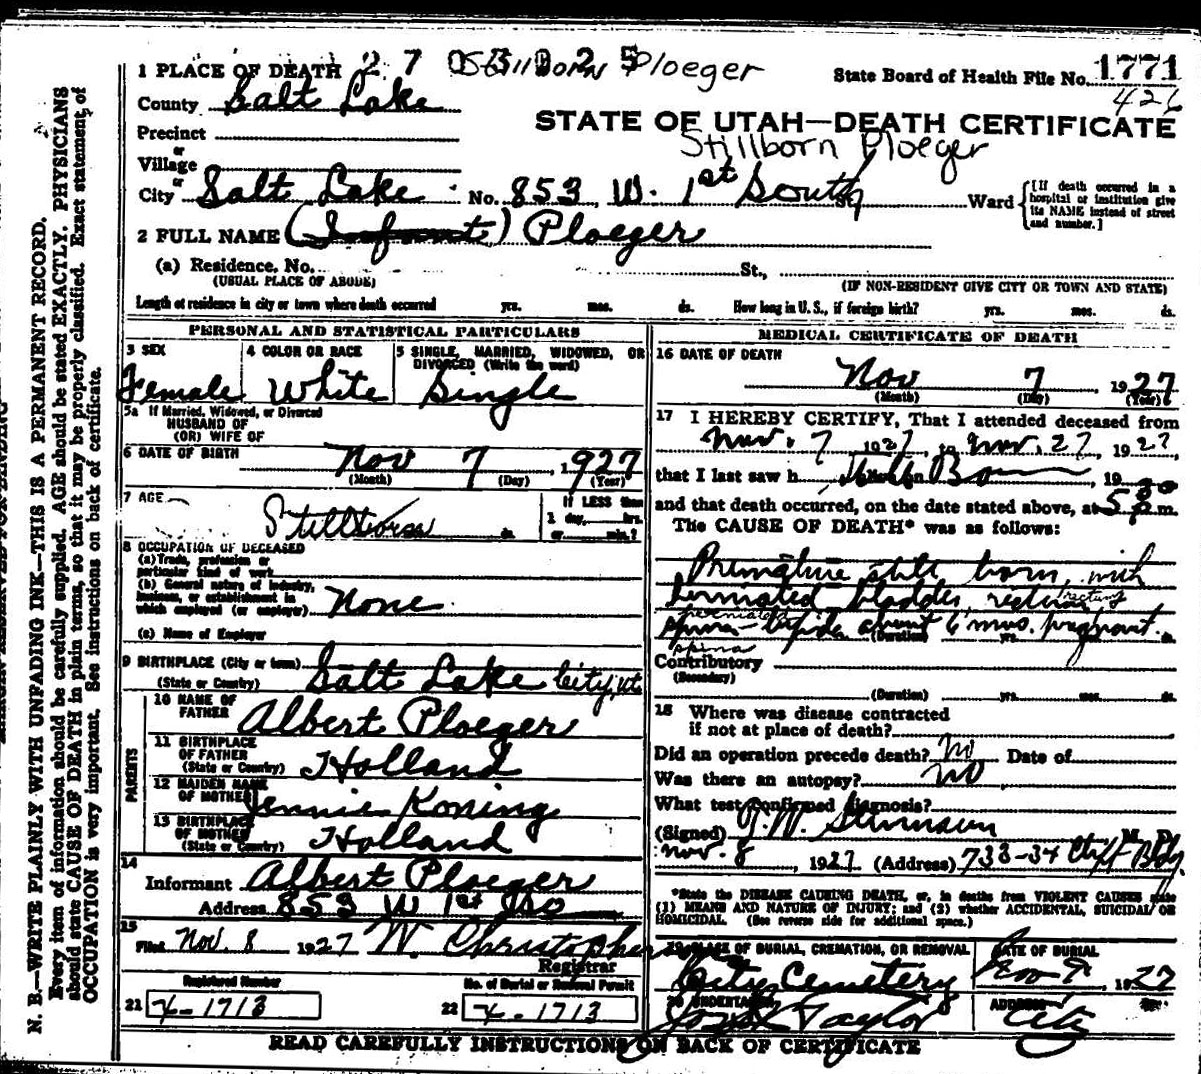 1 PLACE OF DEATH 27 Stillborn Ploeger State Board of Health File No. 1771
County Salt Lake 426
STATE OF UTAH—DEATH CERTIFICATE
Precinct
or
Stillborn Ploeger
Village
or
City Salt Lake No. 853 W. 1st South Ward
[If death occurred in a hospital or institution give its NAME instead of street and number.]
2 FULL NAME (Infant) Ploeger
(a) Residence. No. St.,
(USUAL PLACE OF ABODE) (IF NON-RESIDENT GIVE CITY OR TOWN AND STATE)
Length of residence in city or town where death occurred yrs. mos. ds. How long in U. S., if foreign birth? yrs. mos. ds.
PERSONAL AND STATISTICAL PARTICULARS
3 SEX 4 COLOR OR RACE 5 SINGLE, MARRIED, WIDOWED, OR
DIVORCED (Write the word)
Female White Single
5a If Married, Widowed, or Divorced
HUSBAND OF
(OR) WIFE OF
6 DATE OF BIRTH Nov 7, 1927
(Month) (Day) (Year)
7 AGE Stillborn ds.
If LESS than
1 day, hrs.
or min.?
8 OCCUPATION OF DECEASED
(a) Trade, profession or
particular kind of work
(b) General nature of industry,
business, or establishment in
which employed (or employer) None
(c) Name of Employer
9 BIRTHPLACE (City or town) Salt Lake City, Ut.
(State or Country)
PARENTS
10 NAME OF
FATHER Albert Ploeger
11 BIRTHPLACE
OF FATHER
(State or Country) Holland
12 MAIDEN NAME
OF MOTHER Jennie Koning
13 BIRTHPLACE
OF MOTHER
(State or Country) Holland
14
Informant Albert Ploeger
Address 853 W 1st So
15
Filed Nov. 8 1927 W. Christopher
Registrar
Registered Number No. of Burial or Removal Permit
21 X-1713 22 X-1713
MEDICAL CERTIFICATE OF DEATH
16 DATE OF DEATH
Nov 7, 1927
(Month) (Day) (Year)
17 I HEREBY CERTIFY, That I attended deceased from
Nov. 7 1927, to Nov. 27 1927,
that I last saw h Still Born, 19
and that death occurred, on the date stated above, at 5 p.m.
The CAUSE OF DEATH* was as follows:
Premature still born, with
herniated bladder, rectum
spina-bifida about 6 mos. pregnant.
(Duration) yrs. ds.
spina
Contributory
(Secondary)
(Duration) yrs. mos. ds.
18 Where was disease contracted
if not at place of death?
Did an operation precede death? No Date of
Was there an autopsy? No
What test confirmed diagnosis?
(Signed) Stimson
Nov. 8, 1927 (Address) 733-34 Bldg
*State the DISEASE CAUSING DEATH, or, in deaths from VIOLENT CAUSES state
(1) MEANS AND NATURE OF INJURY; and (2) whether ACCIDENTAL, SUICIDAL OR
HOMICIDAL. (See reverse side for additional space.)
19 PLACE OF BURIAL, CREMATION, OR REMOVAL DATE OF BURIAL
City Cemetery Nov 1927
20 UNDERTAKER ADDRESS
Taylor City
READ CAREFULLY INSTRUCTIONS ON BACK OF CERTIFICATE
N. B.—WRITE PLAINLY WITH UNFADING INK—THIS IS A PERMANENT RECORD.
Every item of information should be carefully supplied. AGE should be stated EXACTLY. PHYSICIANS
should state CAUSE OF DEATH in plain terms, so that it may be properly classified. Exact statement of
OCCUPATION is very important. See instructions on back of certificate.